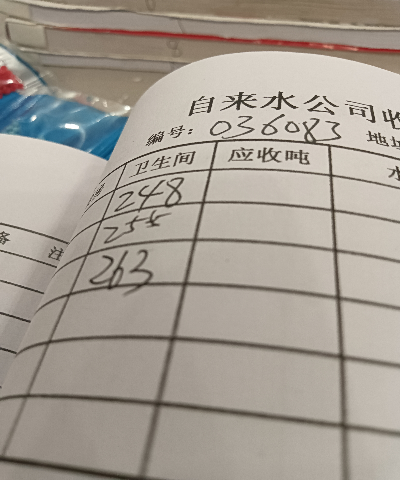 自来水公司收
编号: 036083 地址
卫生间 应收吨 水
248
255
263
备 注